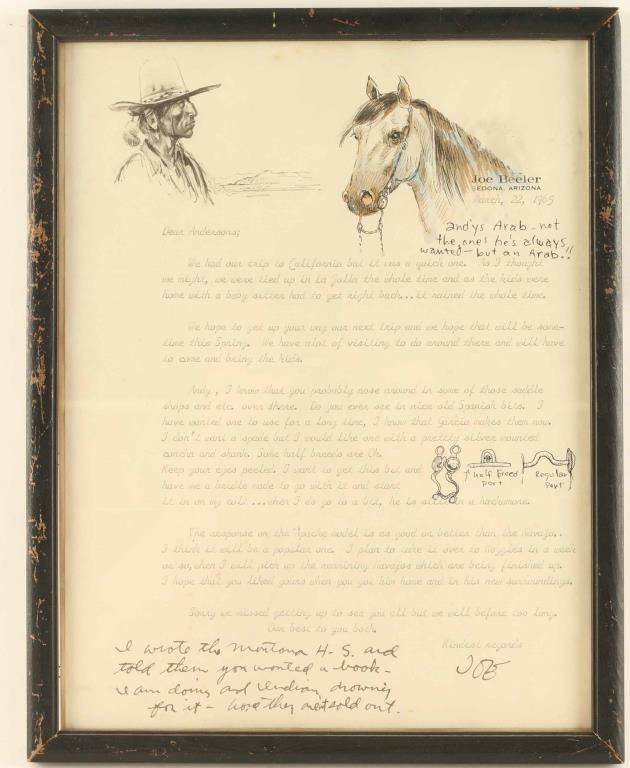 Joe Beeler
SEDONA, ARIZONA
March, 22, 1965
andys Arab - not
the ones he's always
wanted - but an Arab!!
Dear Andersons;
We had our trip to California but it was a quick one. As I thought
we might, we were tied up in La Jolla the whole time and as the kids were
home with a baby sitter had to get right back...it rained the whole time.
We hope to get up your way our next trip and we hope that will be some-
time this Spring. We have alot of visiting to do around there and will have
to come and bring the kids.
Andy, I know that you probably nose around in some of those saddle
shops and etc. over there. Do you ever see in nice old Spanish bits. I
have wanted one to use for a long time, I know that Garcia makes them now.
I don't want a spade but I would like one with a pretty silver mounted
concha and shank. Some half breeds are Ok.
Keep your eyes peeled. I want to get this bit and
have me a bridle made to go with it and start
it in on my colt...when I do go to a bit, he is still in a hackamore.
half Breed
port
Regular
Port
The response on the Apache model is as good or better than the Navajo..
I think it will be a popular one. I plan to take it over to Noggles in a week
or so, when I will pick up the remaining Navajos which are being finished up.
I hope that you liked yours when you got him home and in his new surroundings.
Sorry we missed getting up to see you all but we will before too long.
Our best to you both.
Kindest regards
JOE
I wrote the Montana H. S. and
told them you wanted a book -
I am doing and Indian drawing
for it - hope they aren't sold out.